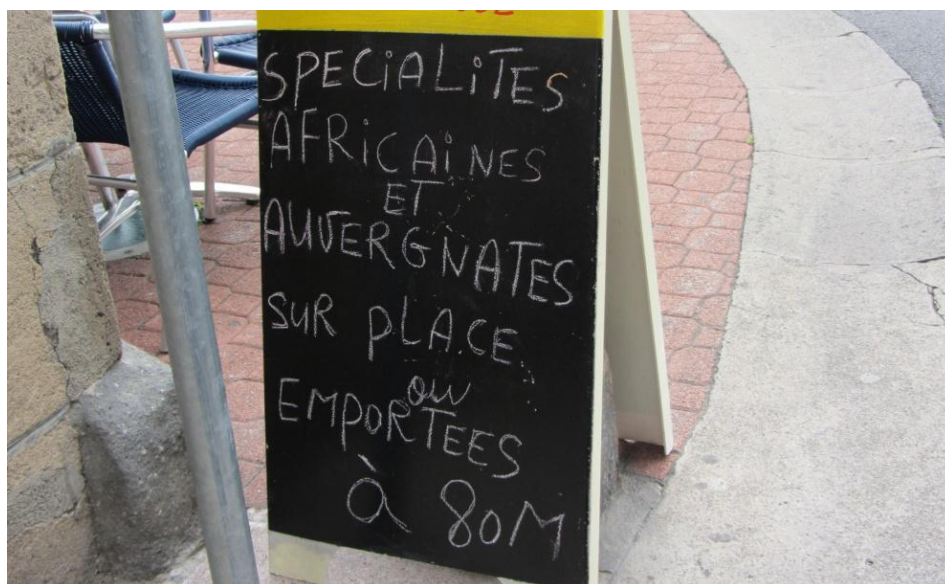 SPECIALiTES
AFRiCAiNES
ET
AUVERGNATES
SUR PLACE
ou
EMPORTEES
à 80M